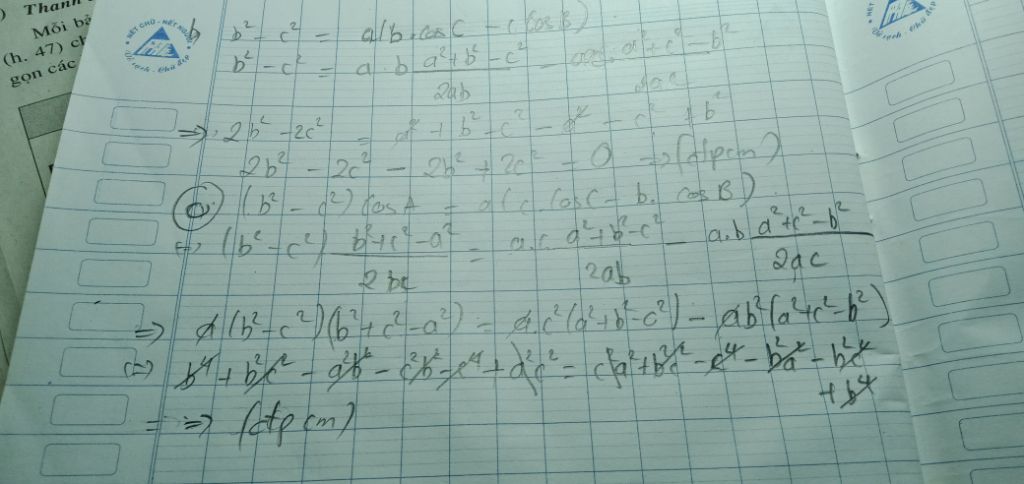 Thanh
Mỗi bà
(h. 47) ch
gọn các
NÉT CHỮ - NẾT NGƯỜI
Vở sạch - Chữ đẹp
b b² - c² = a(b.cosC - c cosB)
b² - c² = a.b (a² + b² - c²)/2ab - ac. (a² + c² - b²)/2ac
=> 2b² - 2c² = a² + b² - c² - a² - c² + b²
2b² - 2c² - 2b² + 2c² = 0 -> (đpcm)
c) (b² - c²) cosA = a(c.cosC - b.cosB)
=> (b² - c²) (b² + c² - a²)/2bc = a.c. (a² + b² - c²)/2ab - a.b (a² + c² - b²)/2ac
=> a(b² - c²)(b² + c² - a²) = a.c²(a² + b² - c²) - ab²(a² + c² - b²)
(=) b⁴ + b²c² - a²b² - c²b² - c⁴ + a²c² = c²a² + b²c² - c⁴ - b²a² - b²c² + b⁴
=> (đpcm)